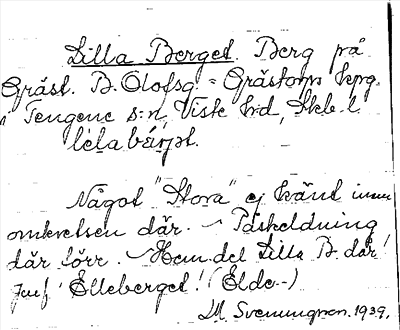 Lilla Berget. Berg på
Gräst. B. Olofsg. = Grästorps kpg.
i Tengene s:n, Viste hd, Skb. l.
lɩla bärjət.
Något "Stora" ej känt inom
omkretsen där. – Påskeldning
där förr. – Hem del Lilla B. där!
Jmf. Elleberget! (Elde-)
M Svenningson. 1939.